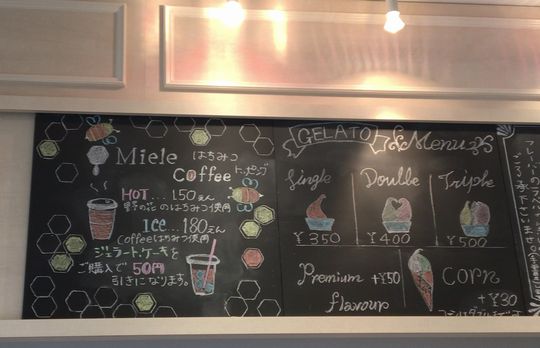 Miele はちみつ
Coffee トッピング
HOT...150えん
野の花のはちみつ使用
Ice...180えん
Coffeeはちみつ使用
ジェラート、ケーキを
ご購入で50円
引きになります。
GELATO Menu
Single Double Triple
¥350 ¥400 ¥500
Premium +¥50
flavour
CORN
+¥30